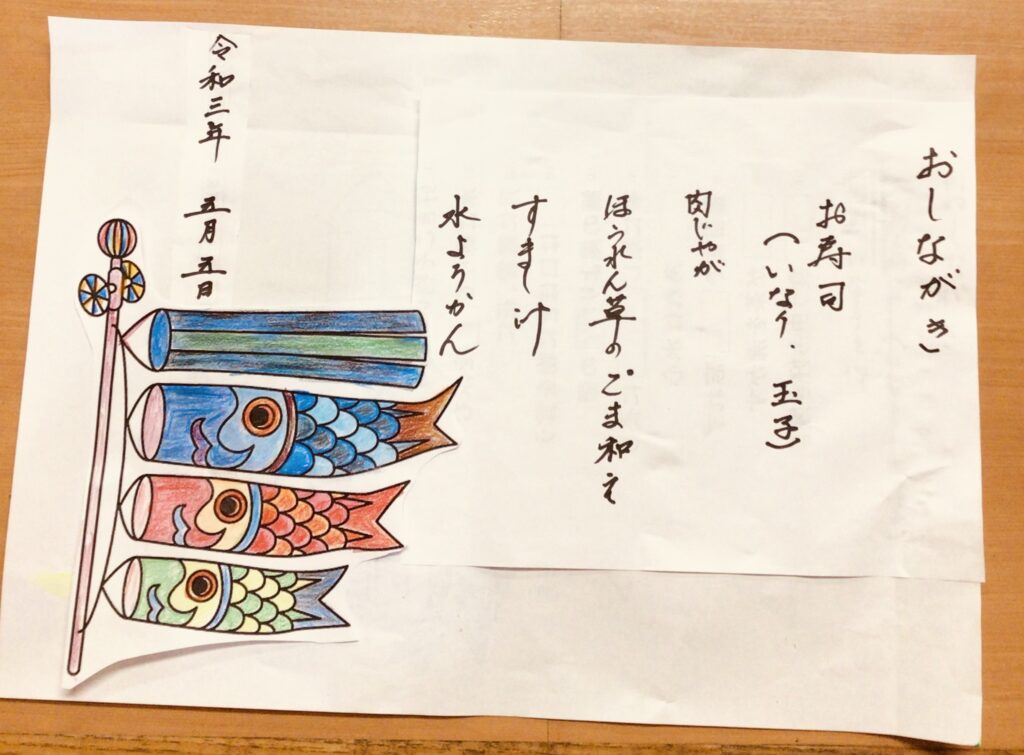 おしながき
お寿司
（いなり、玉子）
肉じゃが
ほうれん草のごま和え
すまし汁
水ようかん
令和三年 五月五日